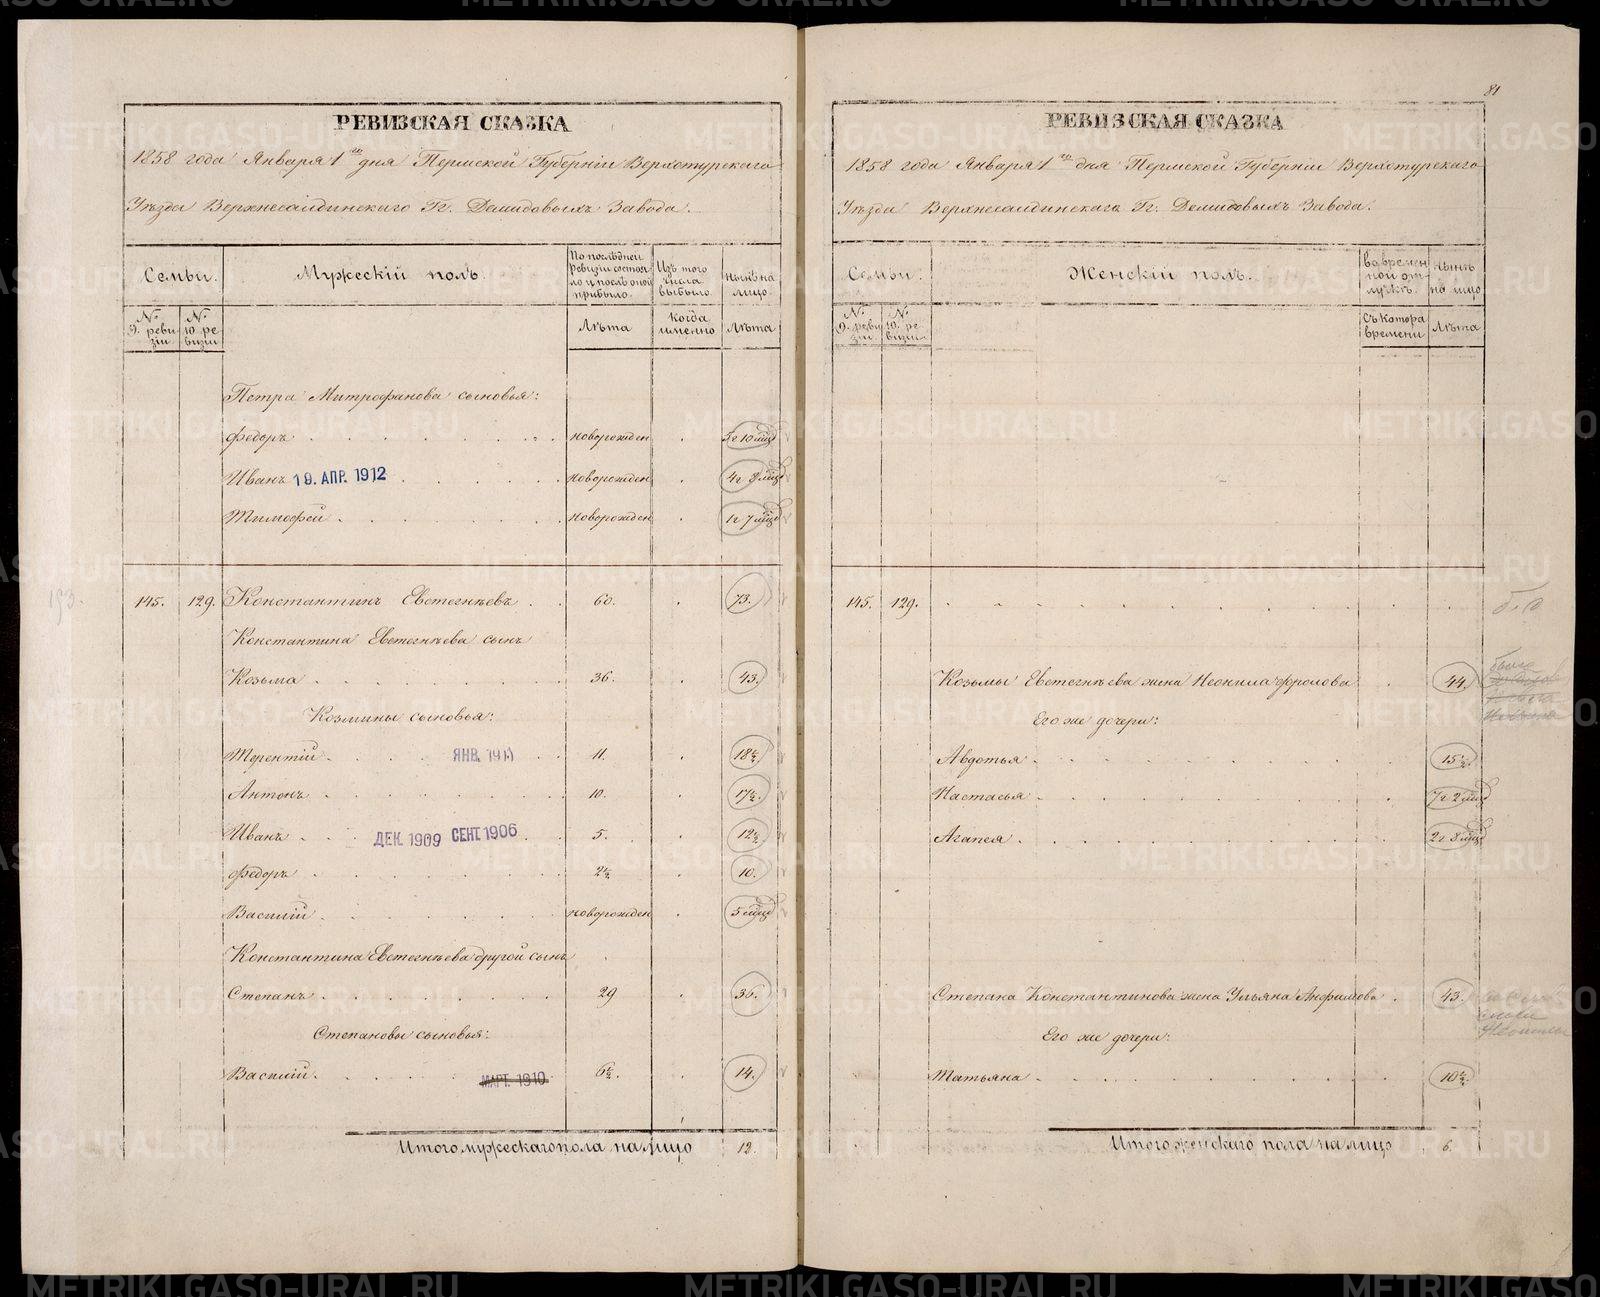 РЕВИЗСКАЯ СКАЗКА
1858 года Января 1го дня Пермской Губерніи Верхотурскаго
Уѣзда Верхнесалдинскаго Гг. Демидовыхъ Завода.
Семьи.
Мужескій полъ.
По послѣдней ревизіи состояло и послѣ оной прибыло.
Изъ того числа выбыло.
Нынѣ на лицо.
№ 9. ревизіи
№ 10. ревизіи
Лѣта
Когда именно
Лѣта
Петра Митрофанова сыновья:
Федоръ новорожден 5г 10 мцъ
Иванъ 19. АПР. 1912 новорожден 4г 8 мцъ
Тимофей новорожден 1г 7 мцъ
145. 129. Константинъ Евстегнѣевъ 60. 73.
Константина Евстегнѣева сынъ
Козьма 36. 43.
Козмины сыновья:
Терентій ЯНВ. 1911 11. 18½
Антонъ 10. 17½.
Иванъ ДЕК. 1909 СЕНТ. 1906 5. 12½
Федоръ 2½ 10.
Василій новорожден 5 мцъ
Константина Евстегнѣева другой сынъ
Степанъ 29 36.
Степановы сыновья:
Василій МАРТ. 1910 6½. 14.
Итого мужескаго пола на лицо 12.
81
РЕВИЗСКАЯ СКАЗКА
1858 года Января 1го дня Пермской Губерніи Верхотурскаго
Уѣзда Верхнесалдинскаго Гг. Демидовыхъ Завода.
Семьи.
Женскій полъ.
Во временной отлучкѣ.
Нынѣ на лицо
№ 9. ревизіи
№ 10. ревизіи
Съ котора времени
Лѣта
145. 129.
Козьмы Евстегнѣева жена Неонила Фролова 44.
Его же дочери:
Авдотья 15½.
Настасья 7г 2 мцъ
Агапея 2г 8 мцъ
Степана Константинова жена Ульяна Анфимова 43.
Его же дочери:
Татьяна 10½.
Итого женскаго пола на лицо 6.
METRIKI.GASO-URAL.RU